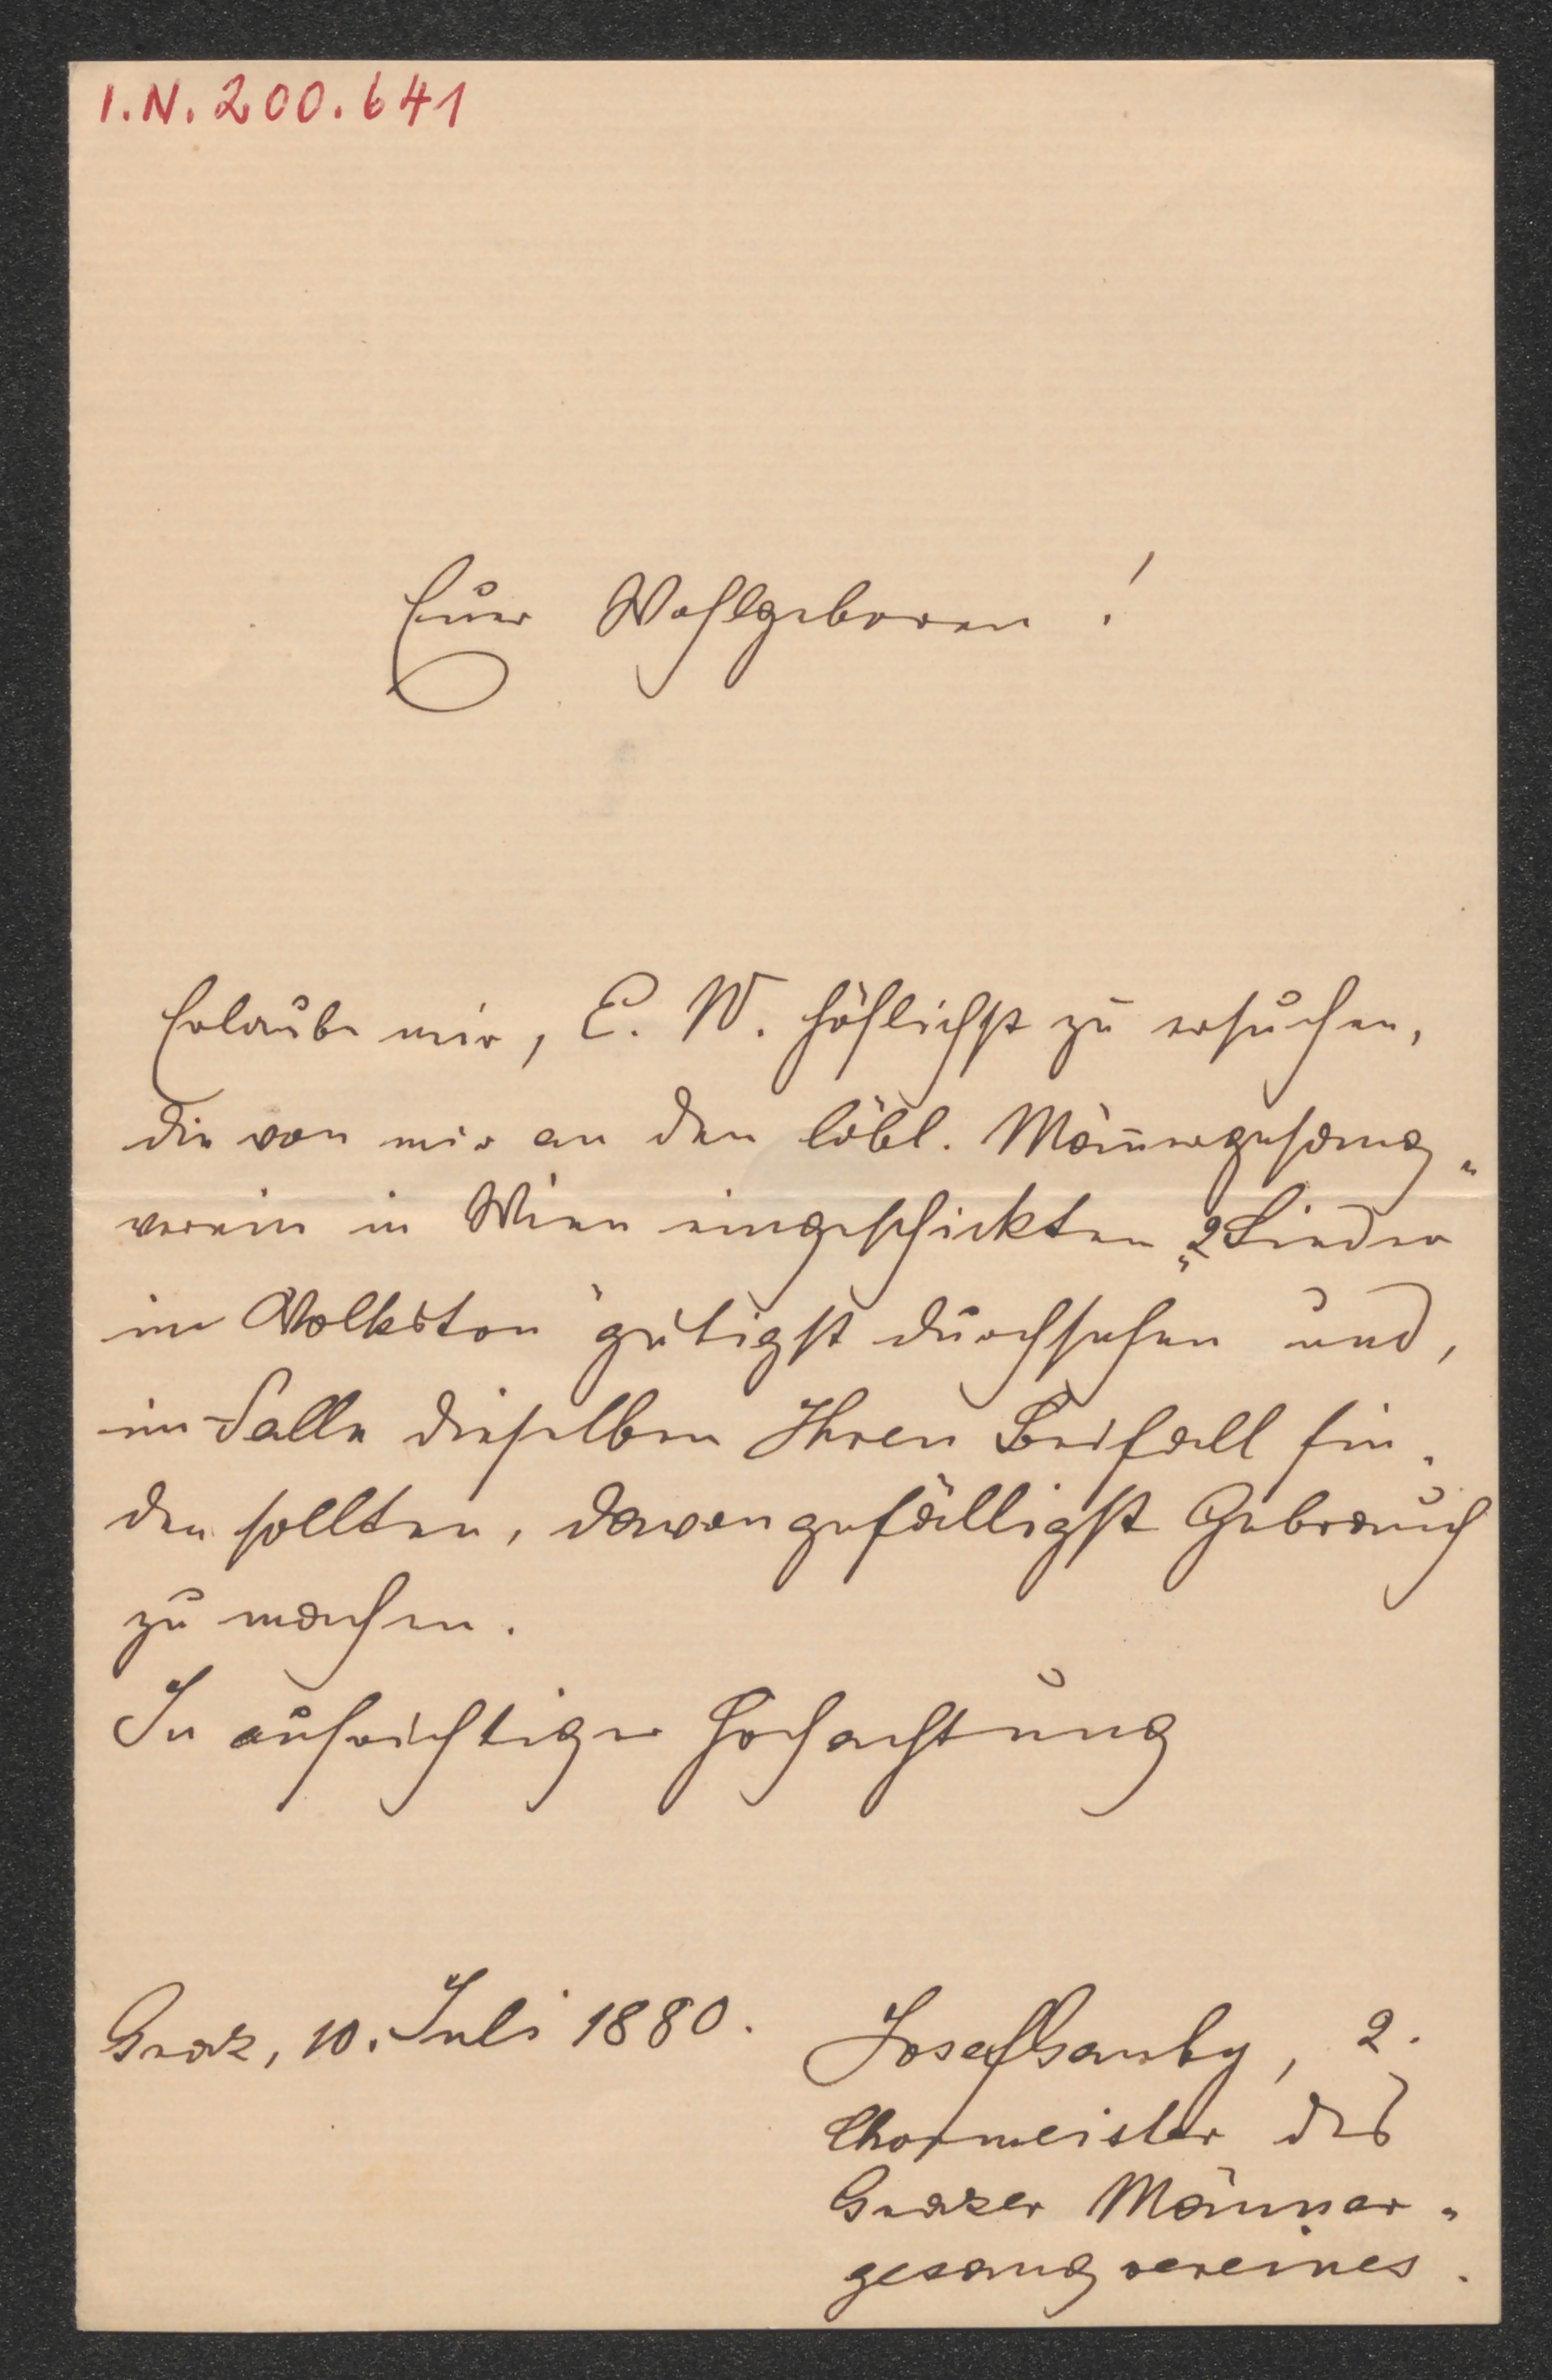 I.N. 200.641
Euer Wohlgeboren !
Erlaube mir, E. W. höflichst zu ersuchen,
die von mir an den löbl. Männergesang„
verein in Wien eingeschickten „2 Lieder
im Volkston" gütigst durchsehen und,
im Falle dieselben Ihren Beifall fin„
den sollten, davon gefälligst Gebrauch
zu machen.
In aufrichtiger Hochachtung
Graz, 10. Juli 1880.
Josef Gauby, 2.
Chormeister des
Grazer Männer„
gesangvereines.